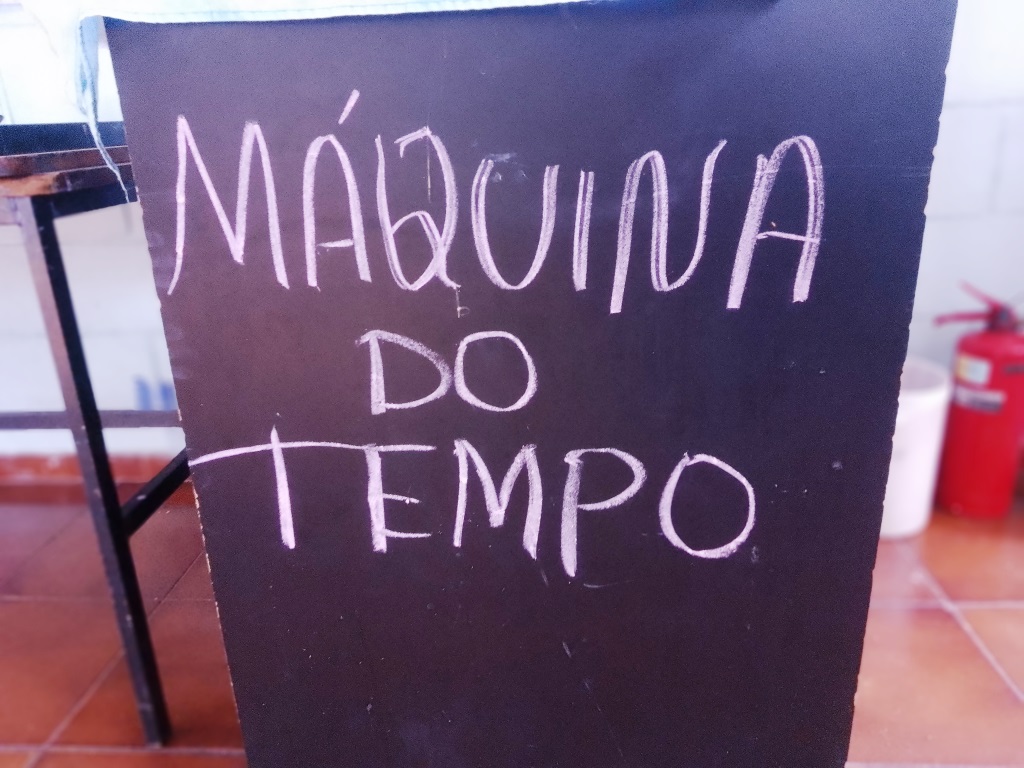 MÁQUINA
DO
TEMPO